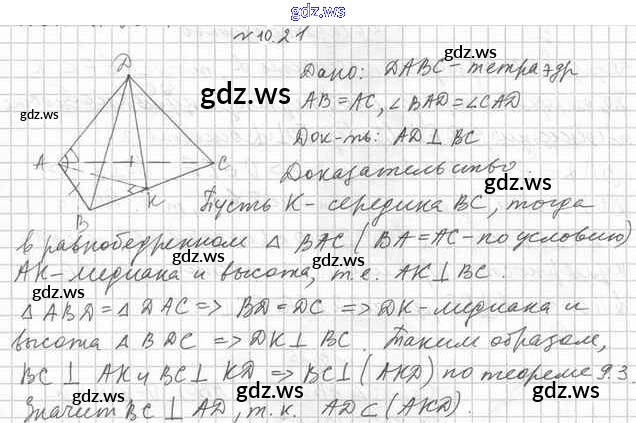 gdz.ws
№10.21
gdz.ws
Дано: DABC - тетраэдр
gdz.ws
AB = AC, ∠BAD = ∠CAD
gdz.ws
Док-ть: AD ⊥ BC
D
A
C
B
K
Доказательство.
gdz.ws
Пусть K - середина BC, тогда
в равнобедренном △ BAC (BA = AC - по условию)
gdz.ws
AK - медиана и высота, т.е. AK ⊥ BC.
gdz.ws
△ ABD = △ DAC => BD = DC => DK - медиана и
высота △ BDC => DK ⊥ BC. Таким образом,
gdz.ws
BC ⊥ AK и BC ⊥ KD => BC ⊥ (AKD) по теореме 9.3.
gdz.ws
Значит BC ⊥ AD, т.к. AD ⊂ (AKD).
gdz.ws